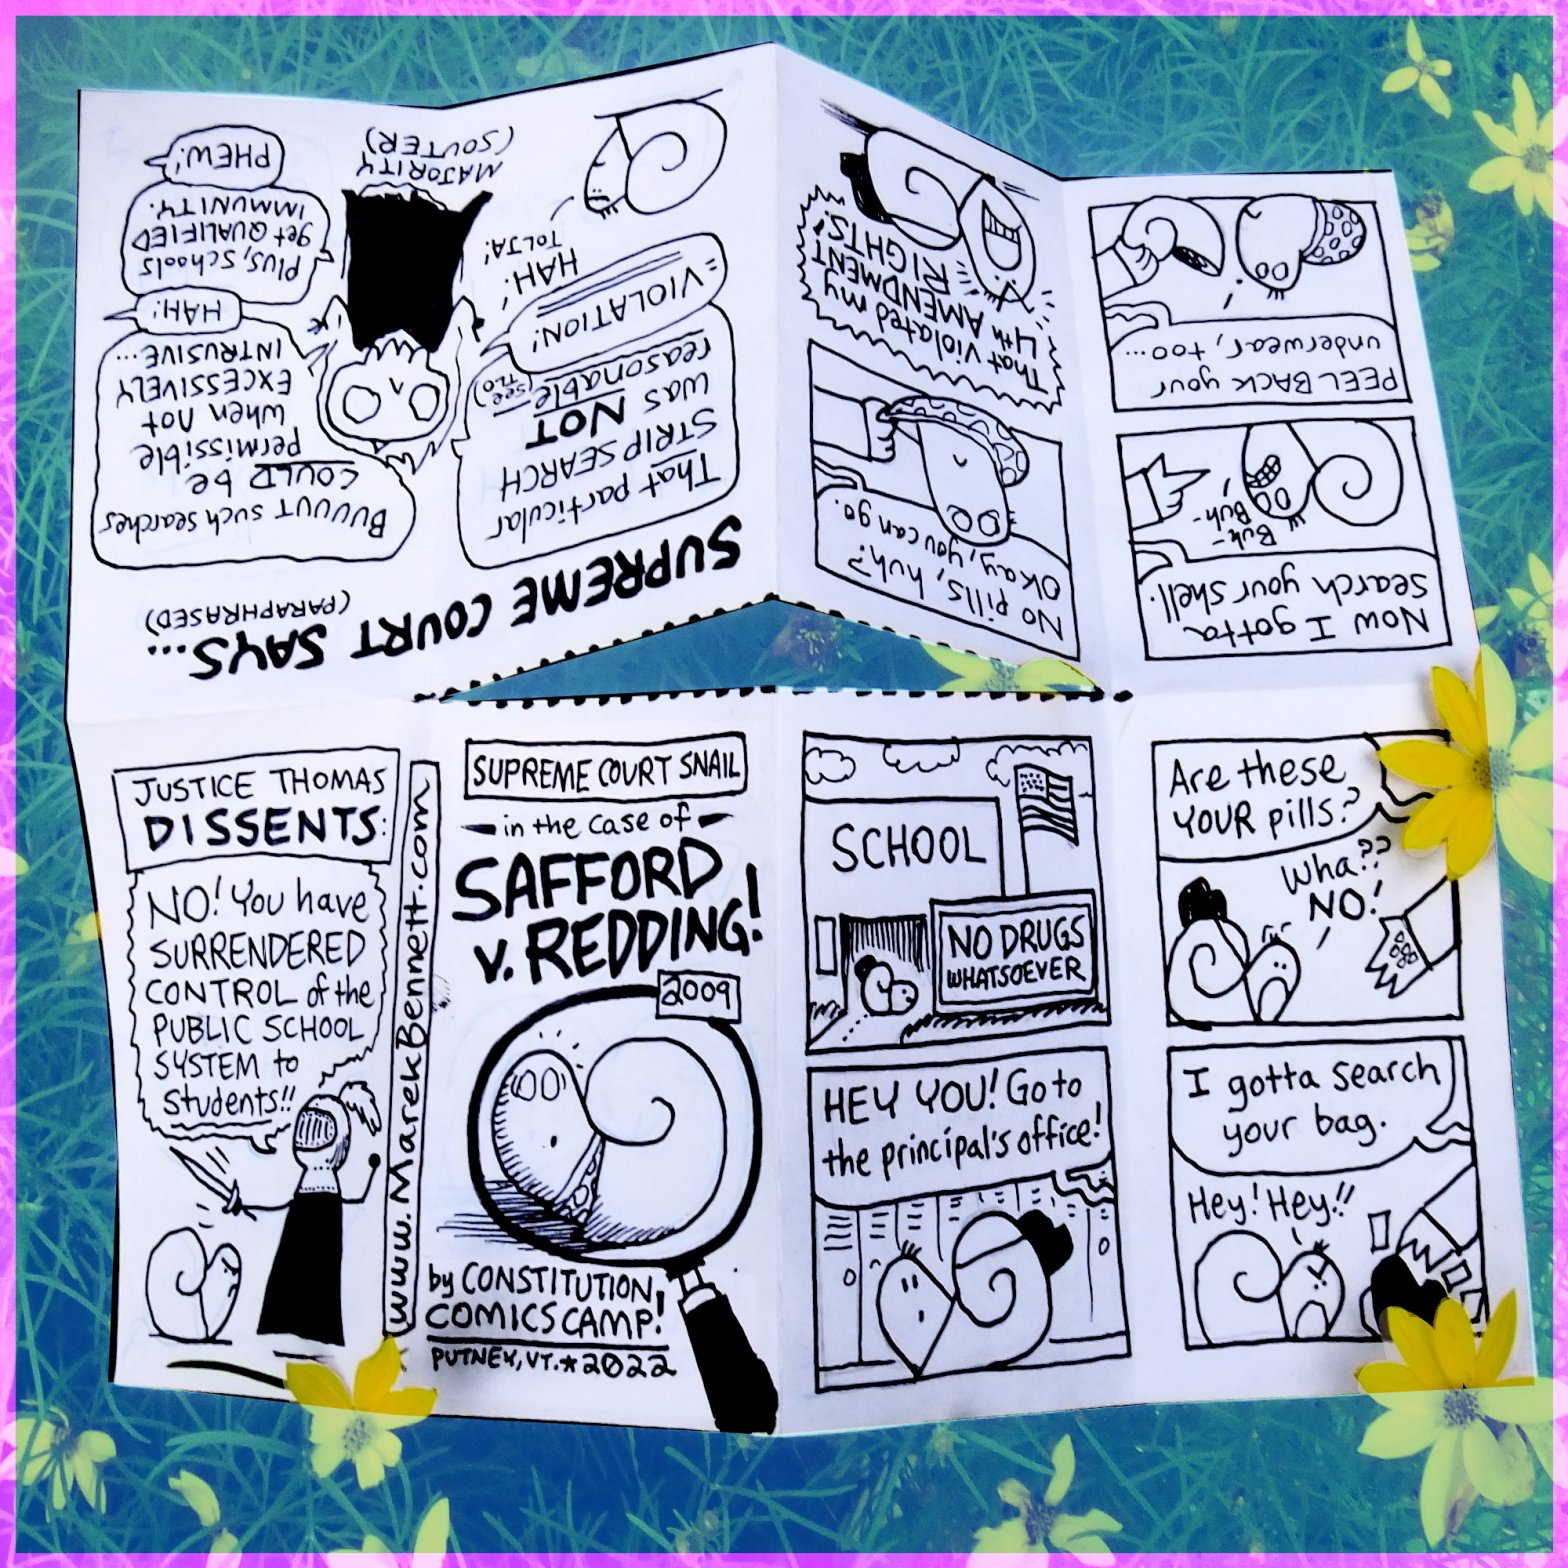 SUPREME COURT SNAIL
in the case of
SAFFORD
v. REDDING!
2009
by CONSTITUTION
COMICS CAMP!
PUTNEY, VT.*2022
SCHOOL
NO DRUGS
WHATSOEVER
HEY YOU! Go to
the principal's office!
Are these
YOUR pills?
Wha??
NO!
I gotta search
your bag.
Hey! Hey!!
Now I gotta
search your shell.
Buh-
Buh-
PEEL BACK your
underwear, too...
No pills, huh?
Okay, you can go.
That violated my
4th AMENDMENT
RIGHTS!
SUPREME COURT SAYS...
(PARAPHRASED)
That particular
STRIP SEARCH
was NOT
reasonable (see TLO)
=VIOLATION!
HAH!
TOLJA!
MAJORITY
(SOUTER)
Buuut such searches
COULD be
permissible
when not
EXCESSIVELY
INTRUSIVE...
HAH!
Plus, schools
get QUALIFIED
IMMUNITY.
PHEW!
JUSTICE THOMAS
DISSENTS:
NO! You have
SURRENDERED
CONTROL of the
PUBLIC SCHOOL
SYSTEM to
students!!
www.MarekBennett.com